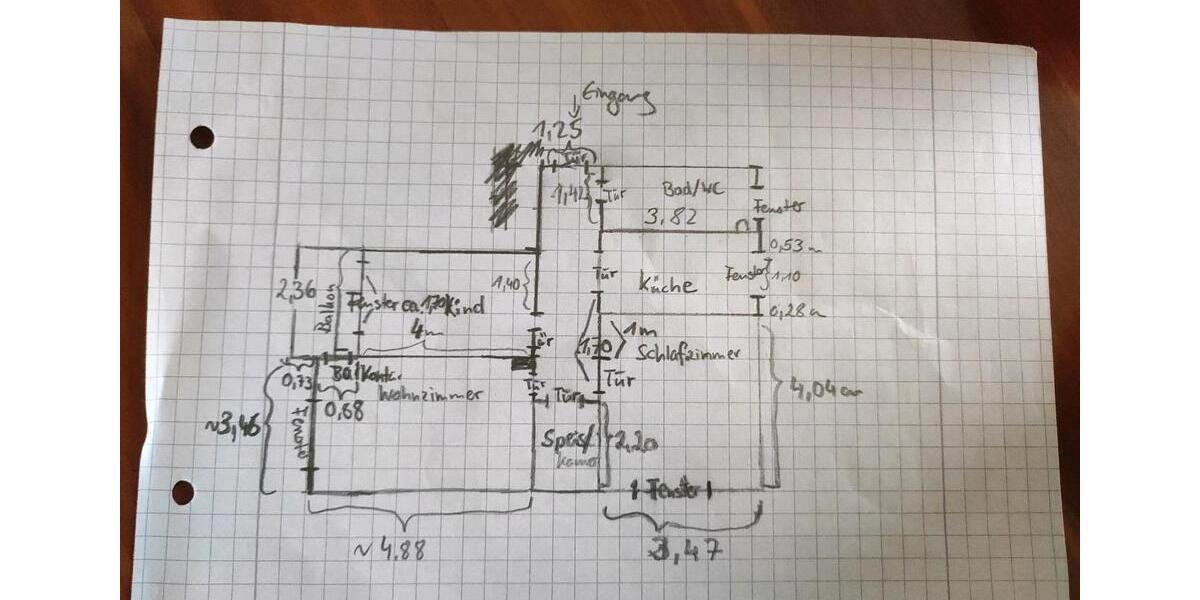 Eingang
1,25
Tür
1,42
Tür
Bad/WC
3,82
Fenster
0,53m
2,36
Balkon
Fenster ca. 1,70
Kind
1,40
Tür
Küche
Fenster
1,10
0,28m
4m
Tür
1,70
1m
Schlafzimmer
0,73
Balkontr.
Wohnzimmer
Tür
Tür
Tür
4,04m
~3,46
0,68
Fenster
Speis/
2,20
Fenster
~4,88
3,47